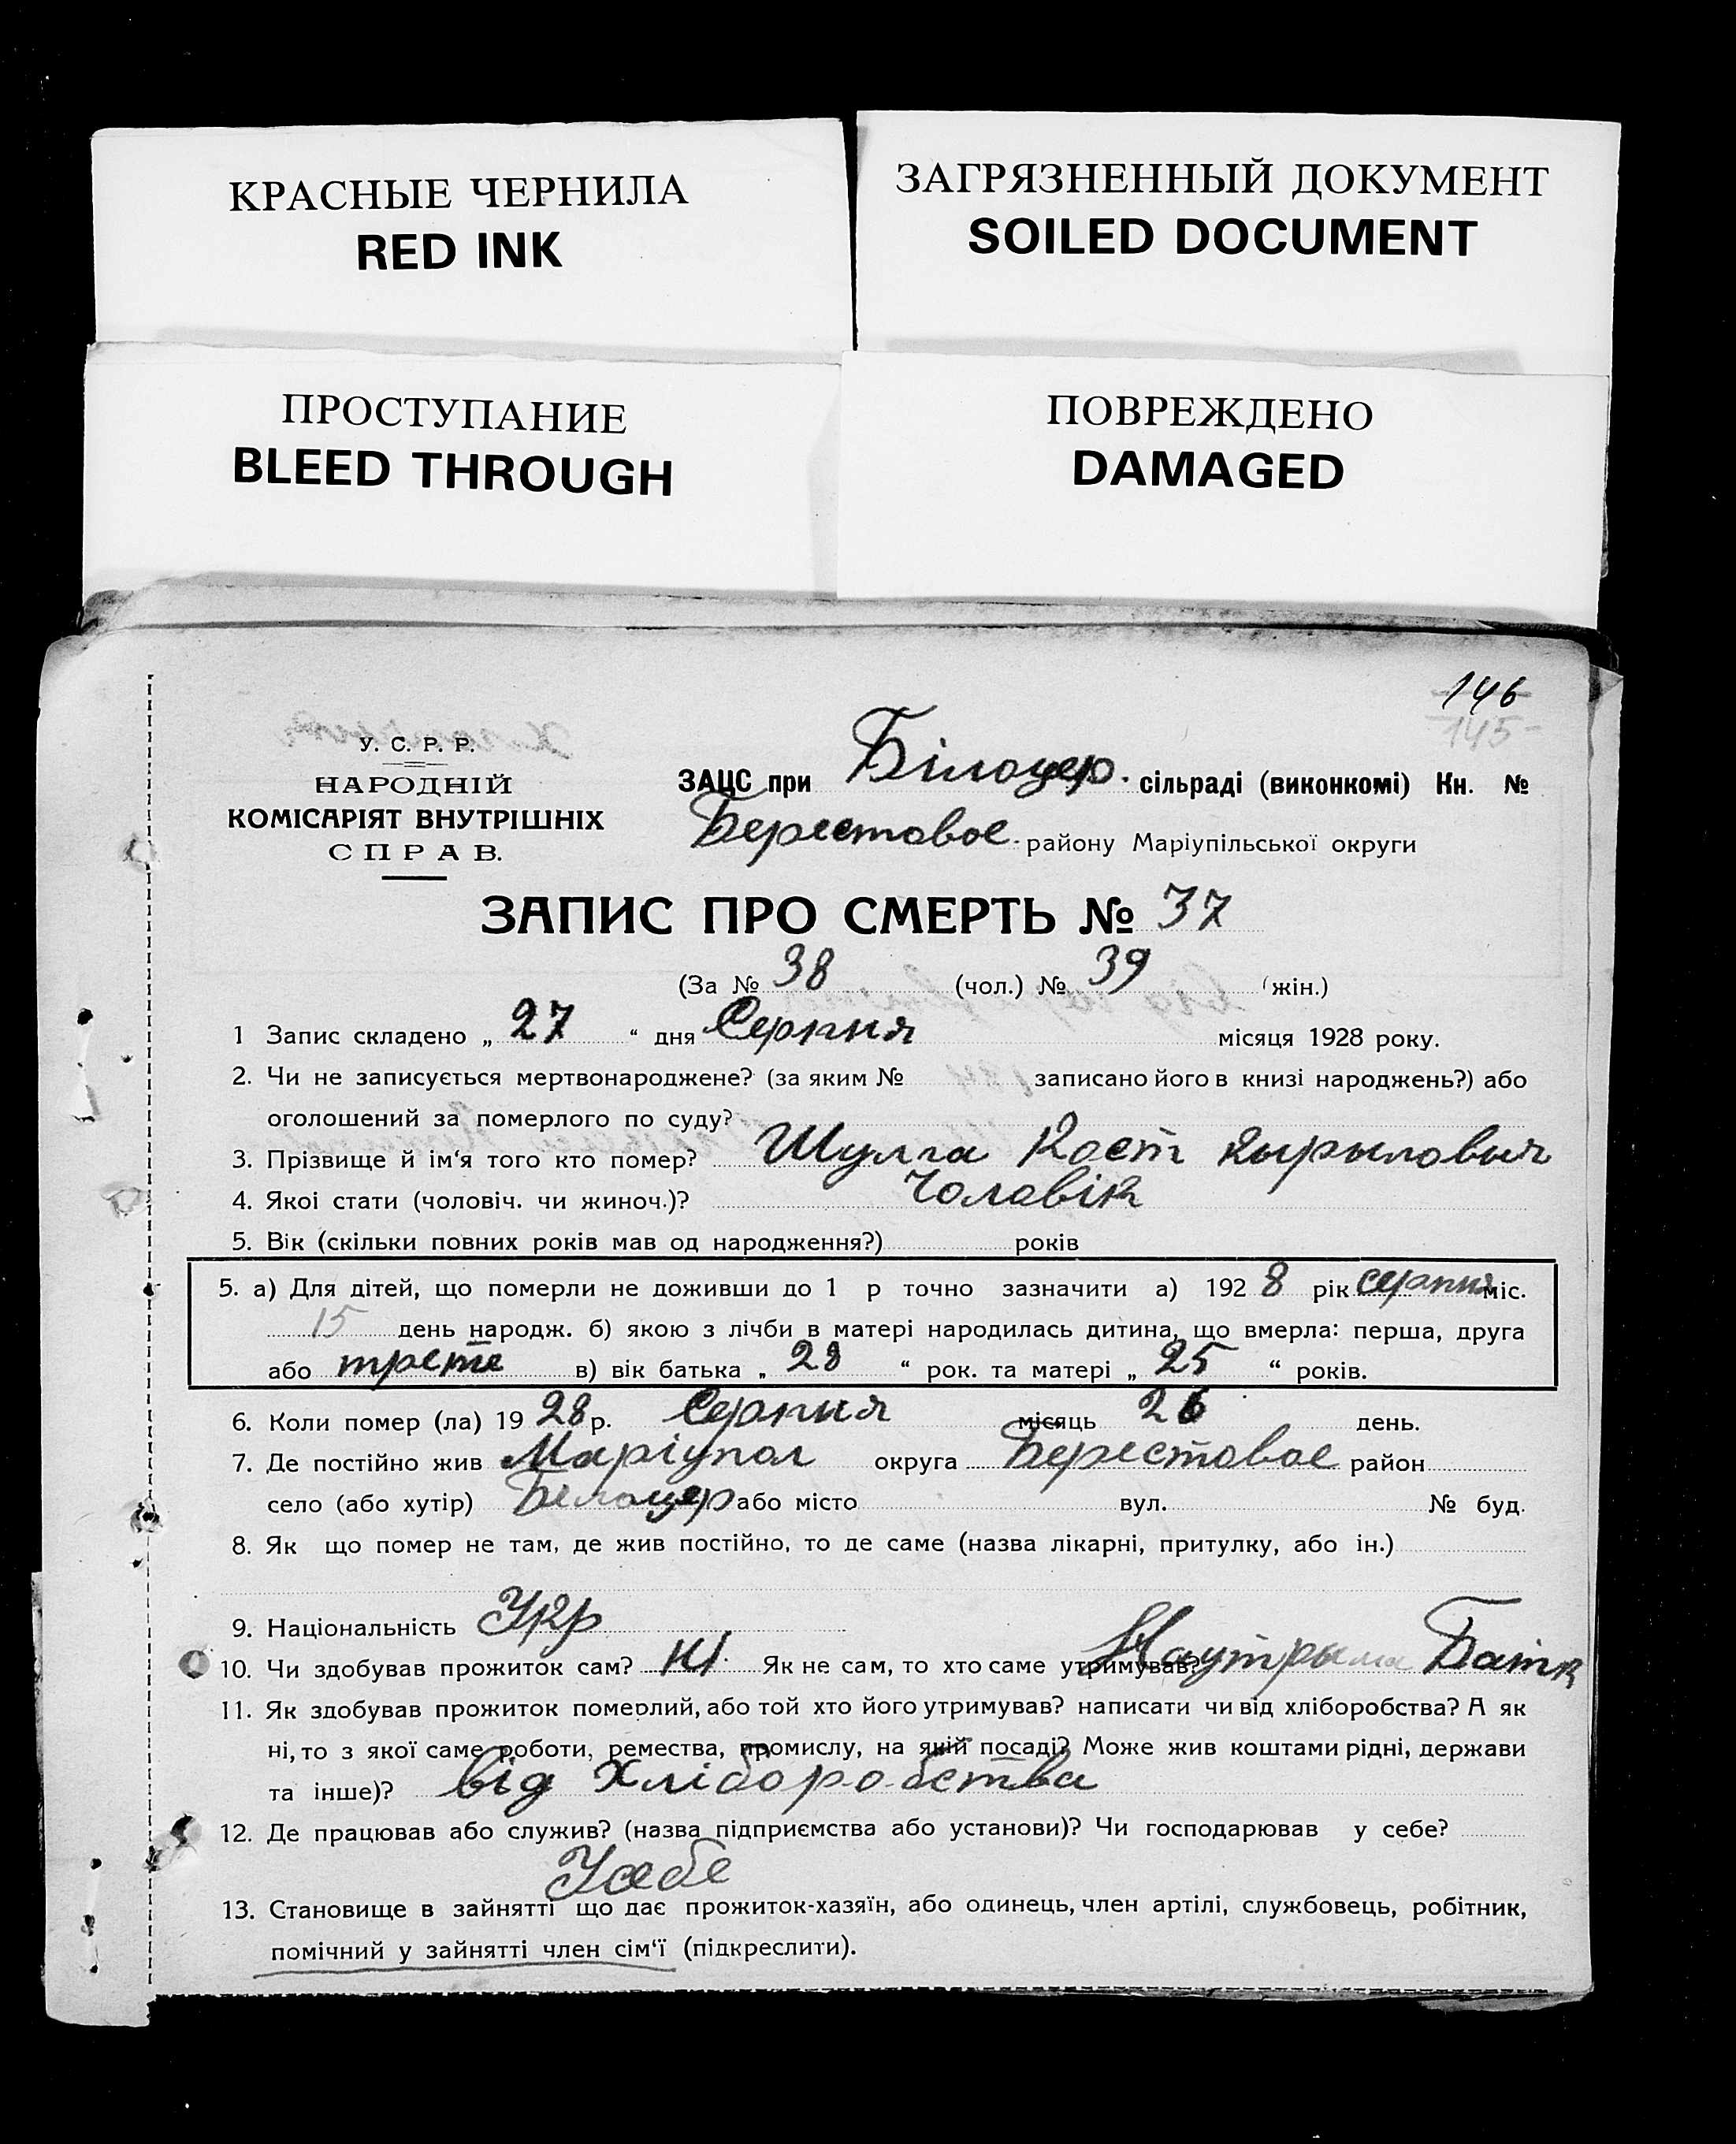 КРАСНЫЕ ЧЕРНИЛА
RED INK
ЗАГРЯЗНЕННЫЙ ДОКУМЕНТ
SOILED DOCUMENT
ПРОСТУПАНИЕ
BLEED THROUGH
ПОВРЕЖДЕНО
DAMAGED
146
145
У. С. Р. Р.
НАРОДНІЙ
КОМІСАРІЯТ ВНУТРІШНІХ
СПРАВ.
ЗАЦС при Білоцер. сільраді (виконкомі) Кн. №
Берестовое. району Маріупільської округи
ЗАПИС ПРО СМЕРТЬ № 37
(За № 38 (чол.) № 39 (жін.)
1 Запис складено „ 27 “ дня Серпня місяця 1928 року.
2. Чи не записується мертвонароджене? (за яким № записано його в книзі народжень?) або
оголошений за померлого по суду?
3. Прізвище й ім‘я того кто помер? Шулга Кост Кырыловыч
4. Якої стати (чоловіч. чи жиноч.)? Чоловік
5. Вік (скільки повних років мав од народження?) років
5. а) Для дітей, що померли не доживши до 1 р точно зазначити а) 192 8 рік серпня міс.
15 день народж. б) якою з лічби в матері народилась дитина, що вмерла: перша, друга
або трете в) вік батька „ 28 “ рок. та матері „ 25 “ років.
6. Коли помер (ла) 19 28 р. Серпня місяць 26 день.
7. Де постійно жив Маріупол округа Берестовое район
село (або хутір) Білоцер або місто вул. № буд.
8. Як що помер не там, де жив постійно, то де саме (назва лікарні, притулку, або ін.)
9. Національність Укр
10. Чи здобував прожиток сам? Ні Як не сам, то хто саме утримував? Батк
11. Як здобував прожиток померлий, або той хто його утримував? написати чи від хліборобства? А як
ні, то з якої саме роботи, ремества, промислу, на якій посаді? Може жив коштами рідні, держави
та інше)? від Хлібороббства
12. Де працював або служив? (назва підприємства або установи)? Чи господарював у себе?
Усебе
13. Становище в зайнятті що дає прожиток-хазяїн, або одинець, член артілі, службовець, робітник,
помічний у зайнятті член сім‘ї (підкреслити).